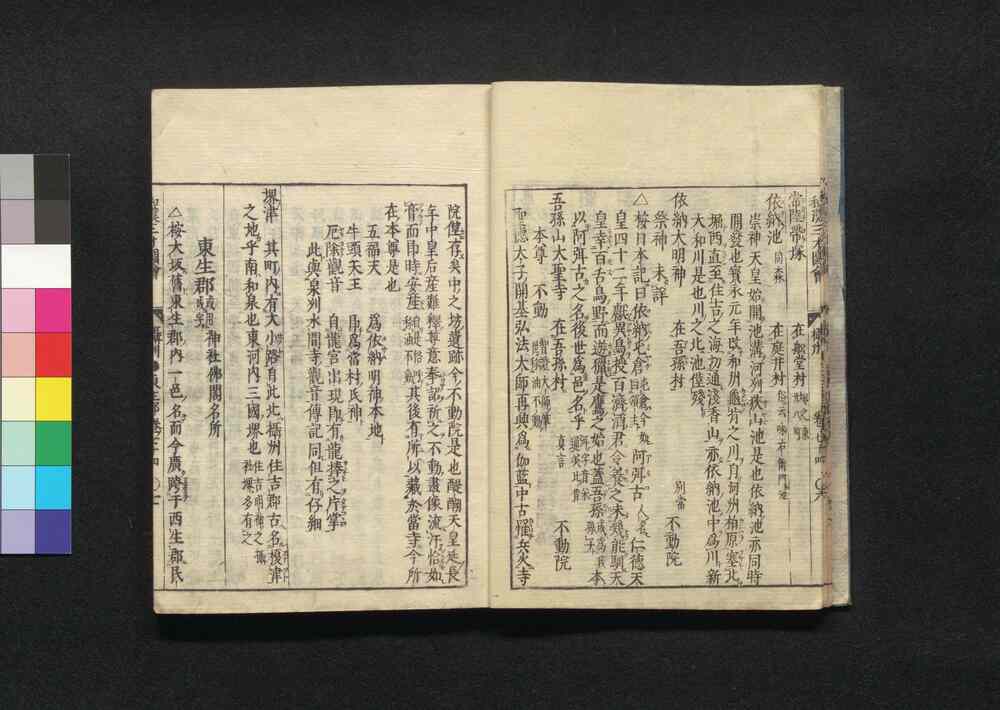 依納池
崇神天皇始開池溝河列狹山池是也依納池亦同時
開發也寳永元年改和州龜背之川自河州柏原塞北
堀西直至住吉之海初通淺香山亦依納池中為川新
大和川是也川之北池僅殘
依納大明神 在吾孫村 不動院
祭神 未詳
△按日本記曰依納屯倉 阿弭古 仁德天
皇四十二年獻異鳥授百濟酒君令養之未幾能馴天
皇幸百舌鳥野而遊獵是鷹之始也蓋吾孫 本
以阿弭古之名後世為邑名乎
吾孫山大聖寺 在吾孫村 真言 不動院
本尊 不動
聖德太子開基弘法大師再興為伽藍中古罹兵火寺
院僅存矣中之坊遺跡今不動院是也醍醐天皇延長
年中皇后産難釋尊意奉詔祈之不動畫像流汗恰如
而即時安産 其後有所以藏於當寺今所
在本尊是也
五福天 為依納明神本地
牛頭天王 即為當村氏神
厄除觀音 自龍宮出現即有龍捧之片掌
此與泉州水間寺觀音傳記同但有仔細
堺津 其町内有大小路自此北攝州住吉郡古名榎津
之地乎南和泉也東河内三國堺也
東生郡 神社佛閣名所
△按大坂舊東生郡内一邑名而今廣跨于西生郡民